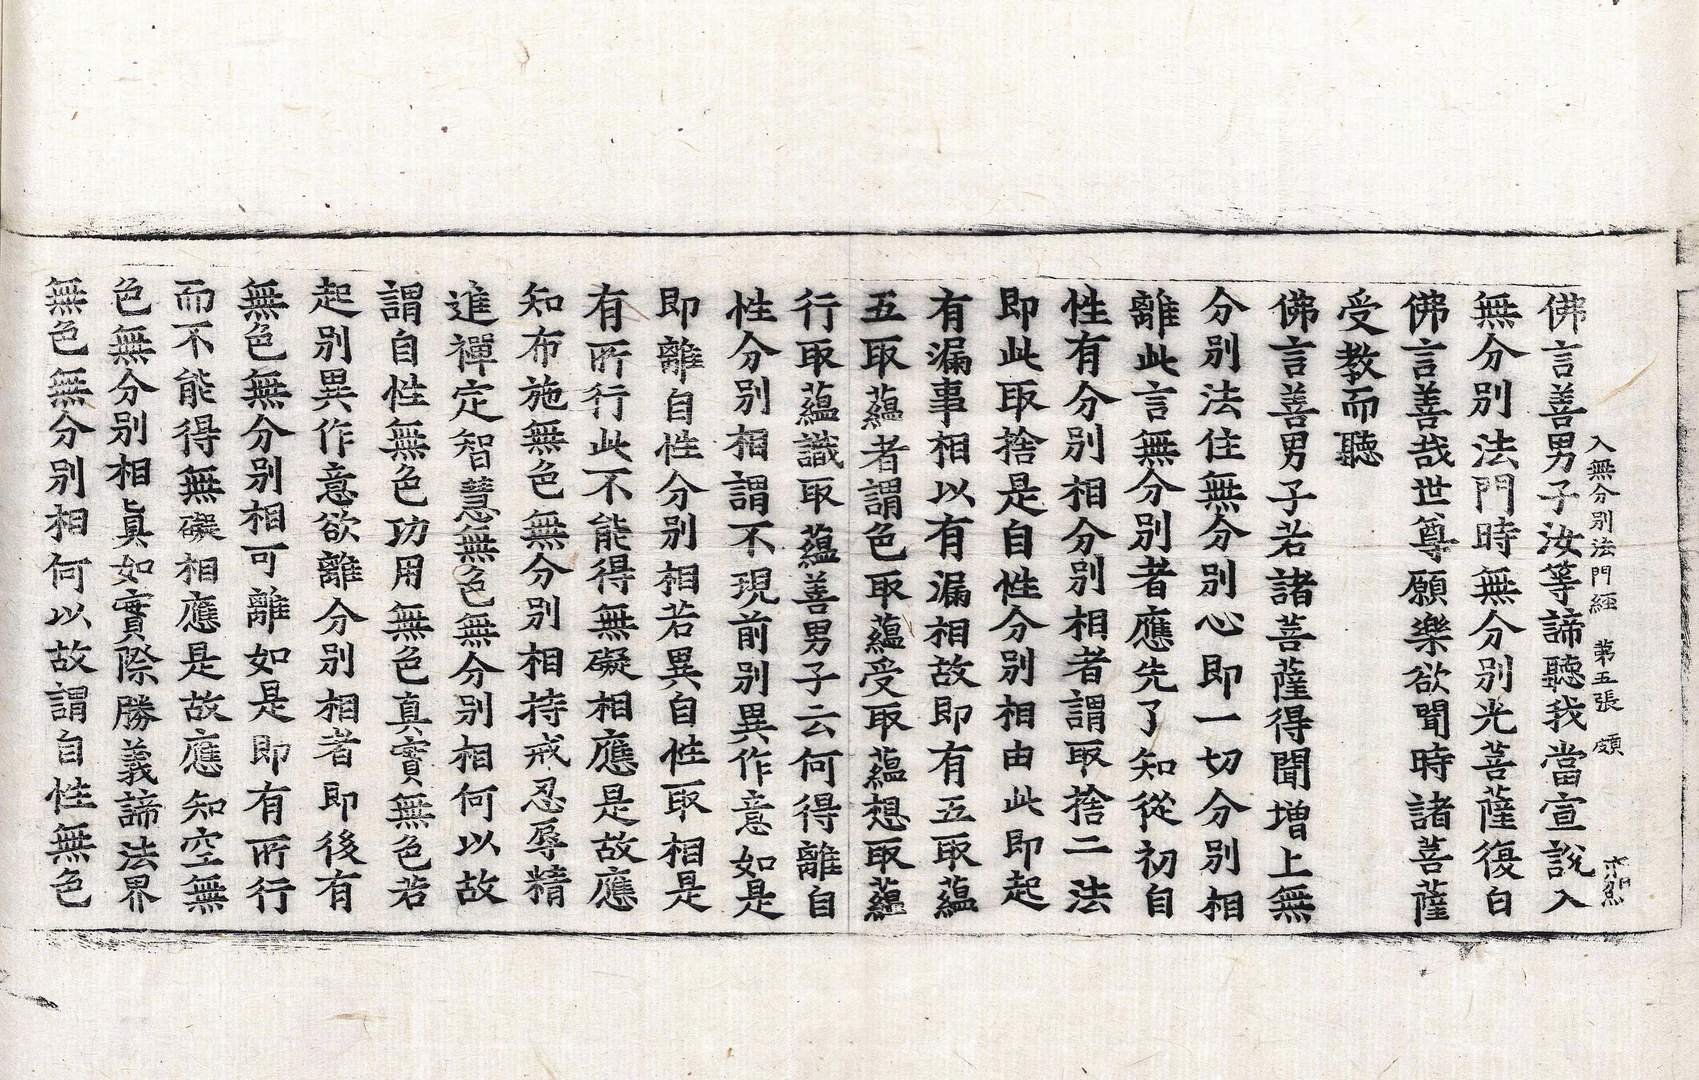 佛言善男子汝等諦聽我當宣說入
入無分別法門經　第五張　頗
無分別法門時無分別光菩薩復白
佛言善哉世尊願樂欲聞時諸菩薩
受教而聽
佛言善男子若諸菩薩得聞增上無
分別法住無分別心即一切分別相
離此言無分別者應先了知從初自
性有分別相分別相者謂取捨二法
即此取捨是自性分別相由此即起
有漏事相以有漏相故即有五取蘊
五取蘊者謂色取蘊受取蘊想取蘊
行取蘊識取蘊善男子云何得離自
性分別相謂不現前別異作意如是
即離自性分別相若異自性取相是
有所行此不能得無礙相應是故應
知布施無色無分別相持戒忍辱精
進禪定智慧無色無分別相何以故
謂自性無色功用無色真實無色若
起別異作意欲離分別相者即後有
無色無分別相可離如是即有所行
而不能得無礙相應是故應知空無
色無分別相眞如實際勝義諦法界
無色無分別相何以故謂自性無色